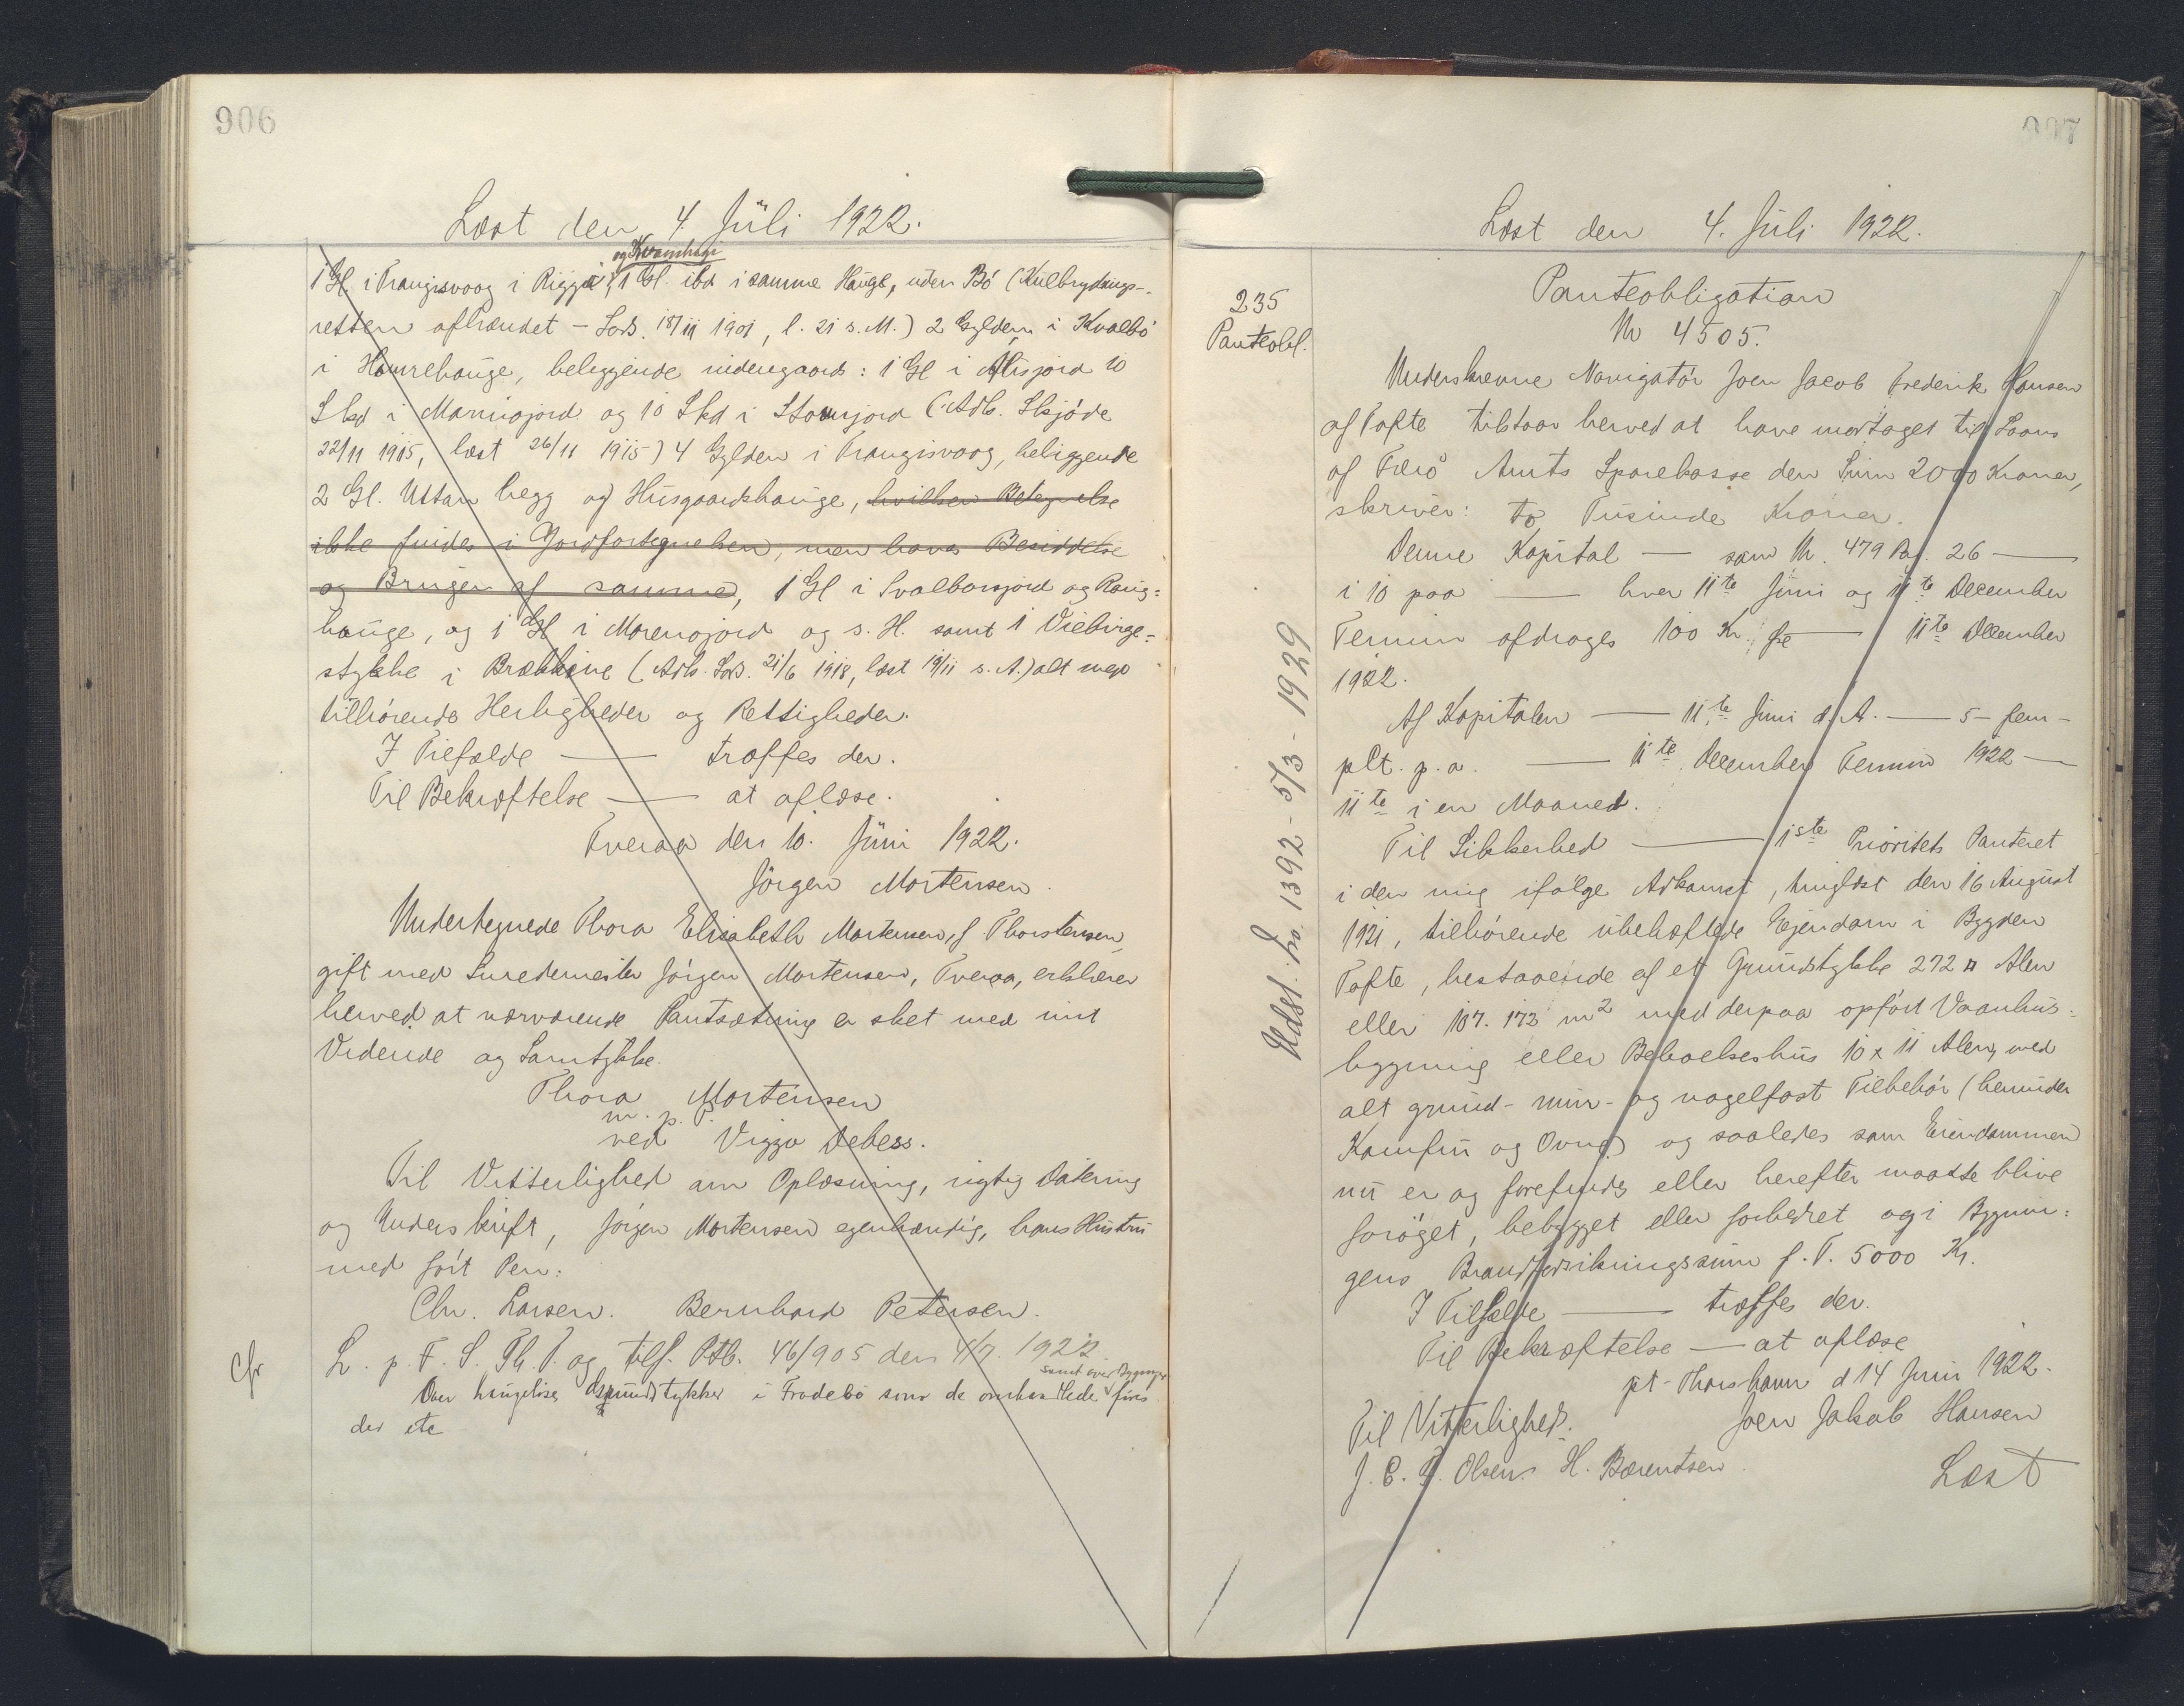 906
Læst den 4. Juli 1922.
og Kvamhagi
1 Gl. i Trangisvaag i Rigga, 1 Gl. ibd i samme Hauge, uden Bö (Kulbrydnings-
retten afhændet - Lovb. 18/11 1901, l. 21 s. M.) 2 Gylden i Kvalbö
i Hamrehauge, beliggende nidengaards: 1 Gl i Misjord 10
Skd i Marniojord og 10 Skd i Stovujord (Adk. Skjöde
22/11 1915, læst 26/11 1915) 4 Gylden i Trangisvaag, beliggende
2 Gl. Uttan hegg og Husgaardshauge, hvilken Betegnelse
ikke findes i Jordfortegnelsen, men haves Besiddelse
og Brugen af samme, 1 Gl i Svalbarsjord og Raug=
hauge, og 1 Gl i Morenojord og s. H. samt 1 Udbringe=
stykke i Brekkune (Adk. Lovb. 21/6 1918, læst 19/11 s. A.) alt med
tilhörende Herligheder og Rettigheder.
I Tilfælde — træffes der.
Til Bekræftelse — at aflæse.
Tveraa den 10. Juni 1922.
Jörgen Mortensen.
Undertegnede Thora Elisabeth Mortensen, f Thorstensen,
gift med Smedemester Jörgen Mortensen, Tveraa, erklærer
herved at nærværende Pantsætning er sket med mit
Vidende og Samtykke.
Thora Mortensen
m. p. P.
ved Viggo Debess.
Til Vitterlighed om Oplæsning, rigtig Datering
og Underskrift, Jörgen Mortensen egenhændig, hans Hustru
med fört Pen:
Chr. Larsen. Bernhard Petersen.
Cfr
L. p. F. S. Th. P. og tilf. Ptb. 46/905 den 4/7. 1922.
samt over Bygninger
Over haugelöse Grundstykker i Frodebö som de omhandlede föres
der etc
907
Læst den 4. Juli 1922.
235
Panteobl.
Udsl. Lra. 1392 - 5/3 - 1929
Panteobligation
No 4505.
Underskrevne Navigatör Joen Jacob Frederik Hansen
af Tofte tilstaar herved at have modtaget til Laans
af Færö Amts Sparekasse den Sum 2000 Kroner,
skriver: to Tusinde Kroner.
Denne Kapital — som N. 479 Pag. 26 —
i 10 paa — hver 11te Juni og 11te December
Termin afdrages 100 Kr. fe — 11te December
1922.
Af Kapitalen — 11te Juni d. A. — 5 - fem -
pCt. p. a. — 11te December Termin 1922 —
11te i en Maaned.
Til Sikkerhed — 1ste Prioritets Panteret
i den mig ifölge Adkomst, tinglæst den 16 August
1921, tilhörende ubehæftede Ejendom i Bygden
Tofte, bestaaende af et Grundstykke 272 □ Alen
eller 107.173 m2 med derpaa opfört Vaanhus=
bygning eller Beboelseshus 10 x 11 Alen, med
alt grund- mur- og nagelfast Tilbehör (herunder
Komfur og Ovne) og saaledes som Eiendommen
nu er og forefindes eller herefter maatte blive
foröget, bebygget eller forbedret og i Bygnin=
gens Brandforsikringssum f. T. 5000 Kr.
I Tilfælde — træffes der.
Til Bekræftelse — at aflæse
pt - Thorshavn d 14 Juni 1922.
Til Vitterlighed: Joen Jakob Hansen
J. E. P. Olsen. H. Bærentsen.
Læst